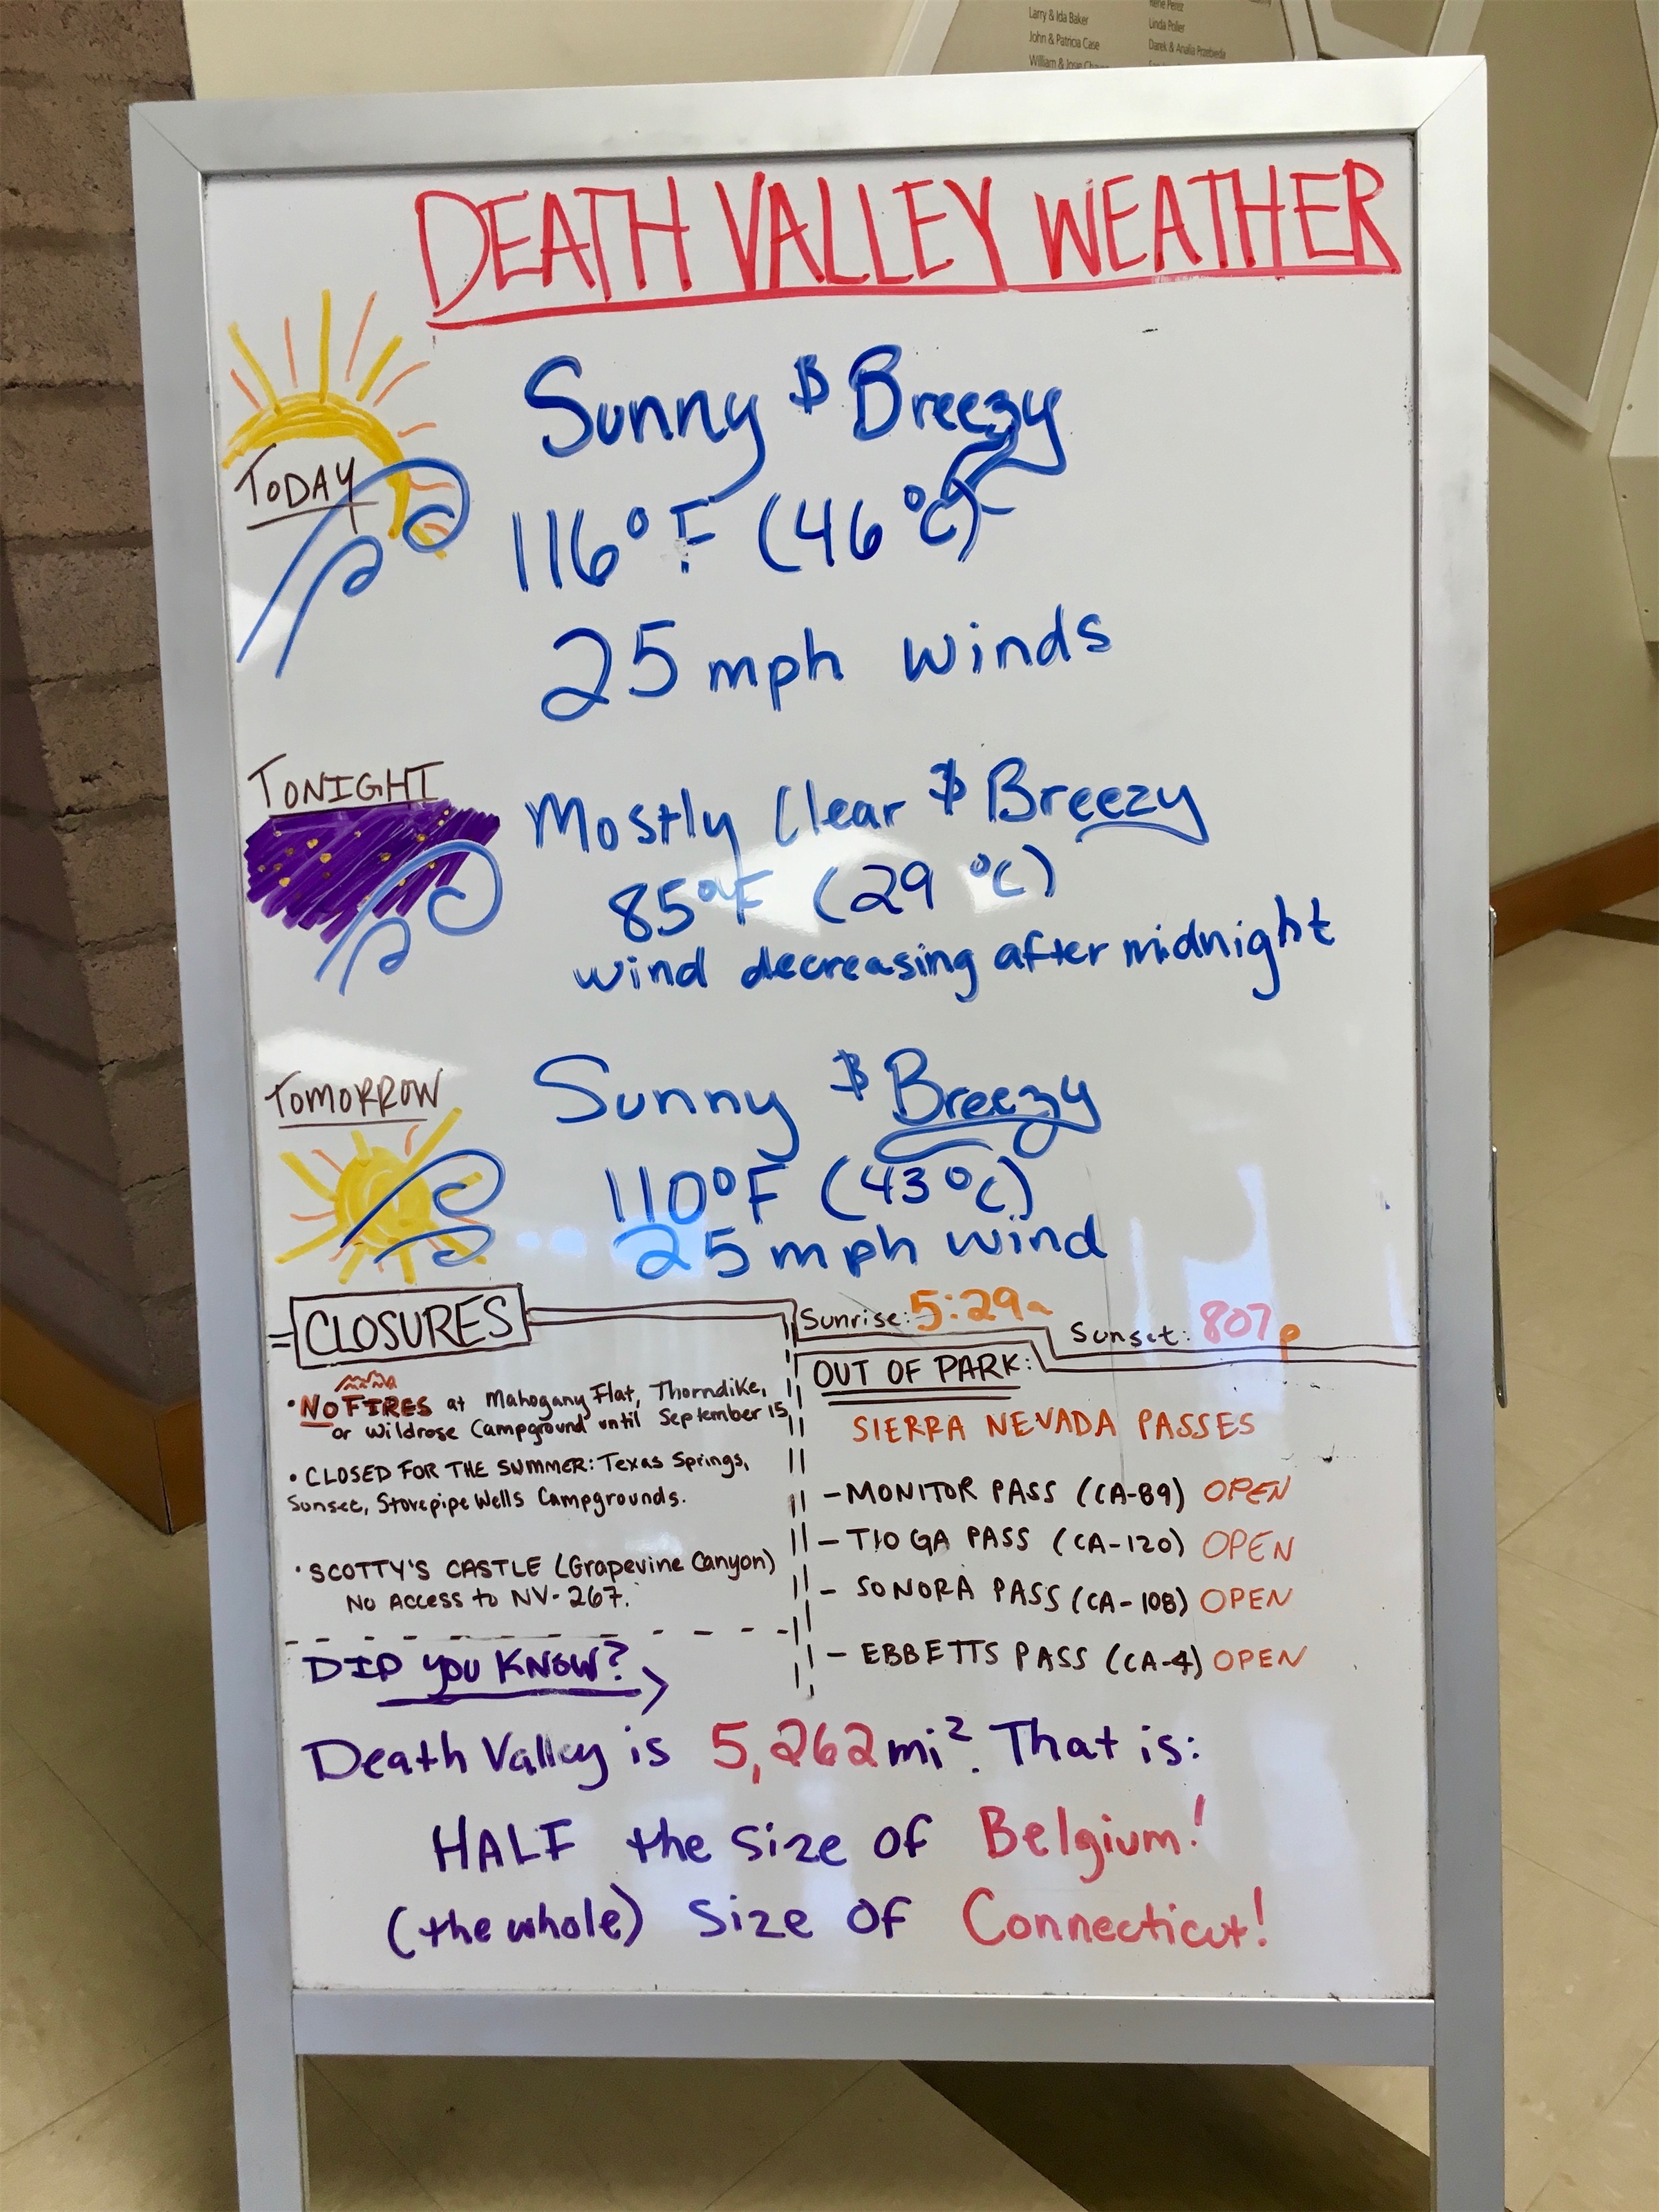 René Perez
Larry & Ida Baker
Linda Poller
John & Patricia Case
Darek & Analia Przebieda
William & Josie
DEATH VALLEY WEATHER
TODAY
Sunny & Breezy
116°F (46°C)
25 mph winds
TONIGHT
Mostly Clear & Breezy
85°F (29 °C)
wind decreasing after midnight
TOMORROW
Sunny & Breezy
110°F (43°C)
25 mph wind
CLOSURES
• NO FIRES at Mahogany Flat, Thorndike,
or Wildrose Campground until September 15
• CLOSED FOR THE SUMMER: Texas Springs,
Sunset, Stovepipe Wells Campgrounds.
• SCOTTY'S CASTLE (Grapevine Canyon)
No Access to NV-267.
Sunrise: 5:29a
Sunset: 807p
OUT OF PARK:
SIERRA NEVADA PASSES
- MONITOR PASS (CA-89) OPEN
- TIOGA PASS (CA-120) OPEN
- SONORA PASS (CA-108) OPEN
- EBBETTS PASS (CA-4) OPEN
DID YOU KNOW?
Death Valley is 5,262 mi². That is:
HALF the size of Belgium!
(the whole) size of Connecticut!